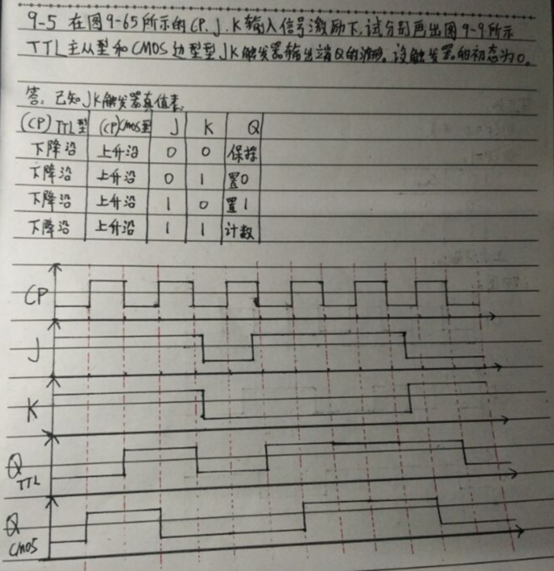 9-5 在图9-65所示的CP、J、K输入信号激励下,试分别画出图9-9所示
TTL主从型和CMOS边型型JK触发器输出端Q的波形。设触发器的初态为0。
答:已知JK触发器真值表。
(CP)TTL型 (CP)CMOS型 J K Q
下降沿 上升沿 0 0 保持
下降沿 上升沿 0 1 置0
下降沿 上升沿 1 0 置1
下降沿 上升沿 1 1 计数
CP
J
K
Q TTL
Q CMOS